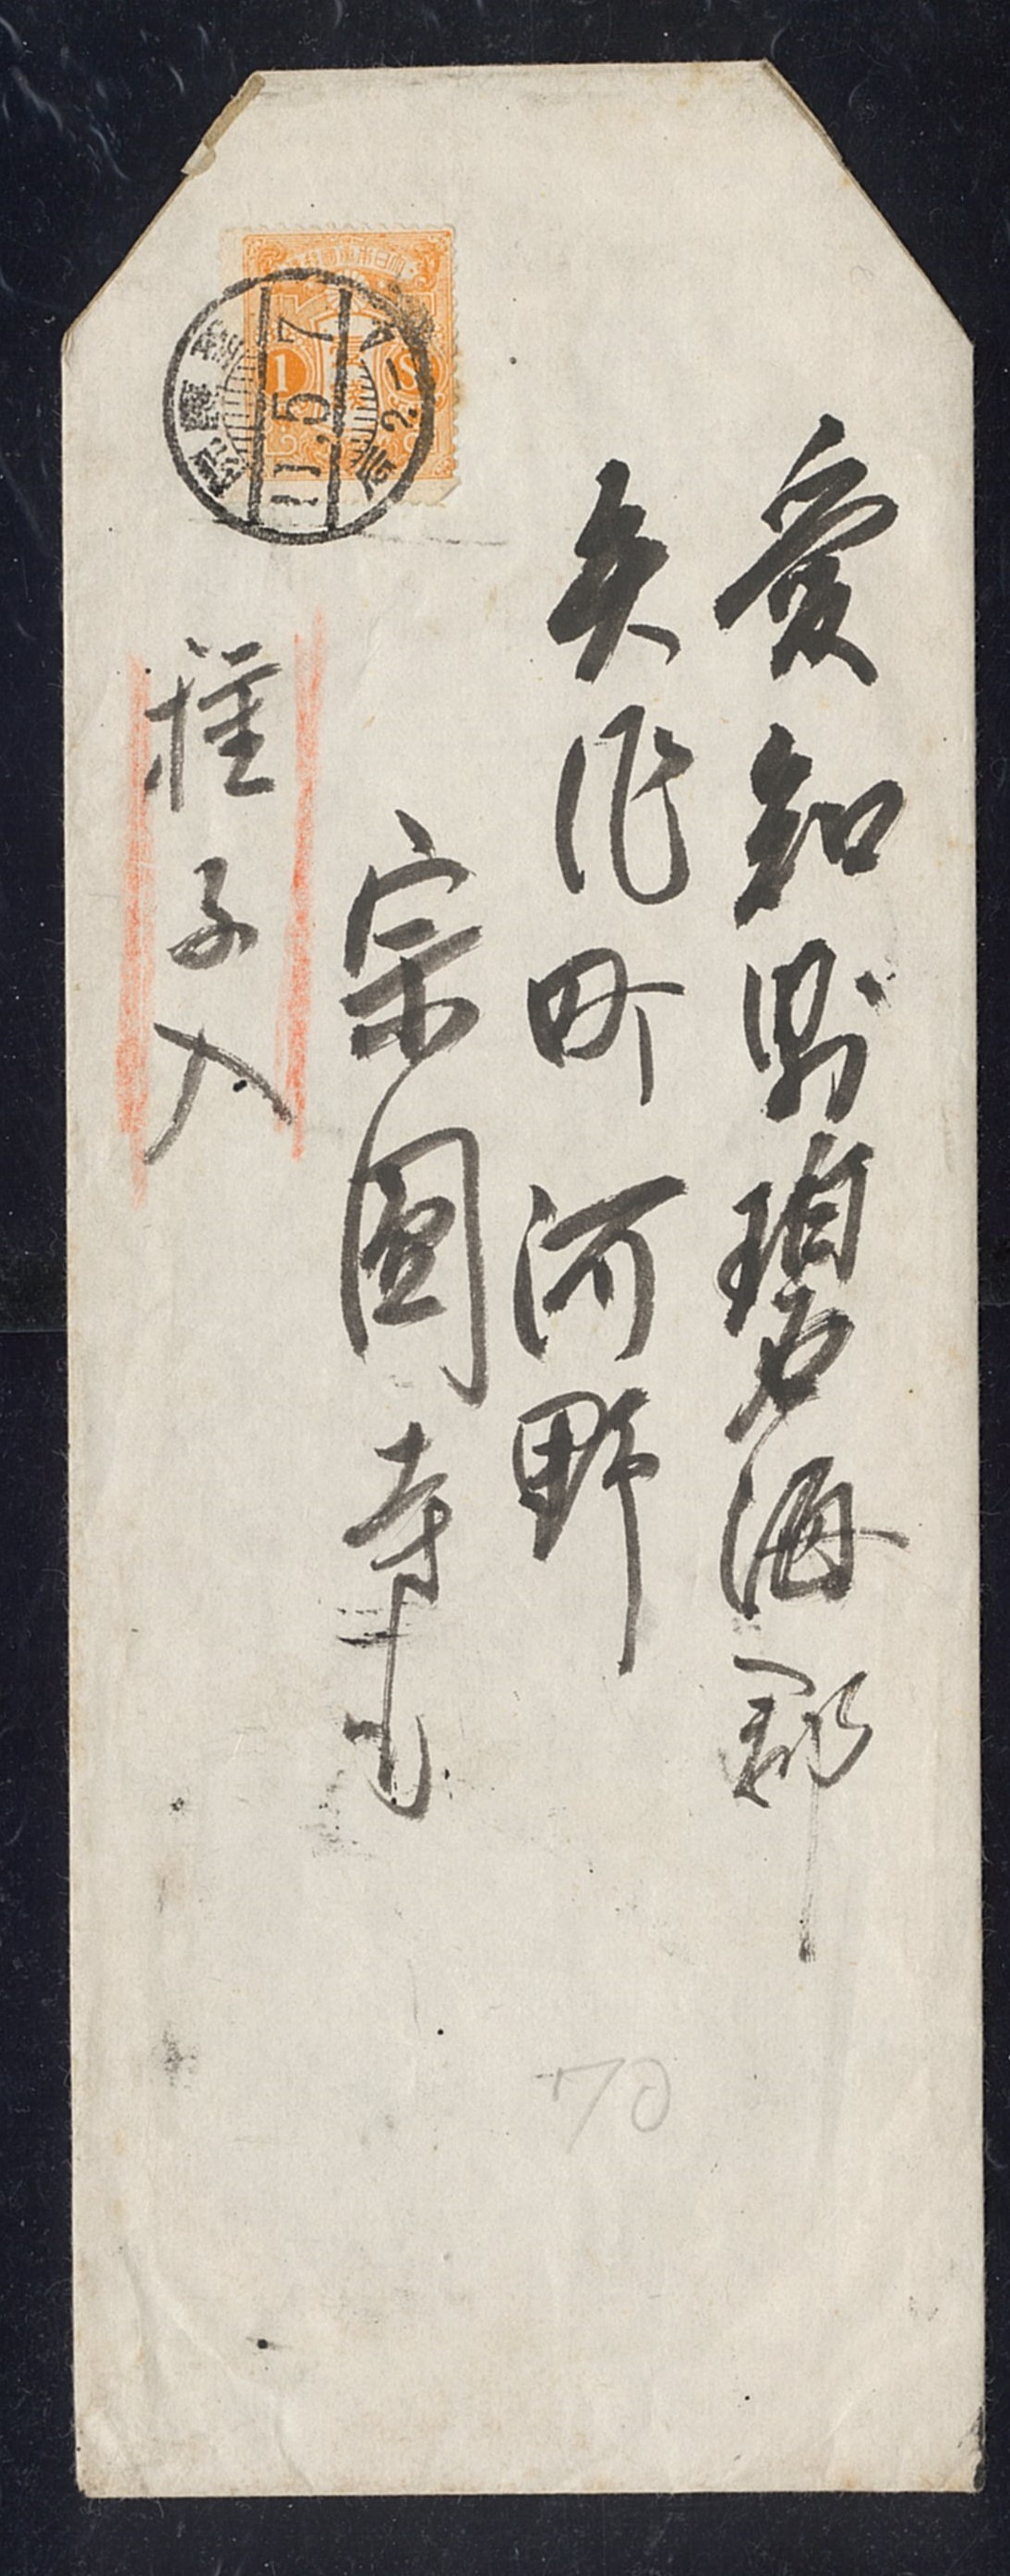 愛知縣碧海郡
矢作町河野
宗圓寺
種子入
11.5.7
后2-
1
S
70